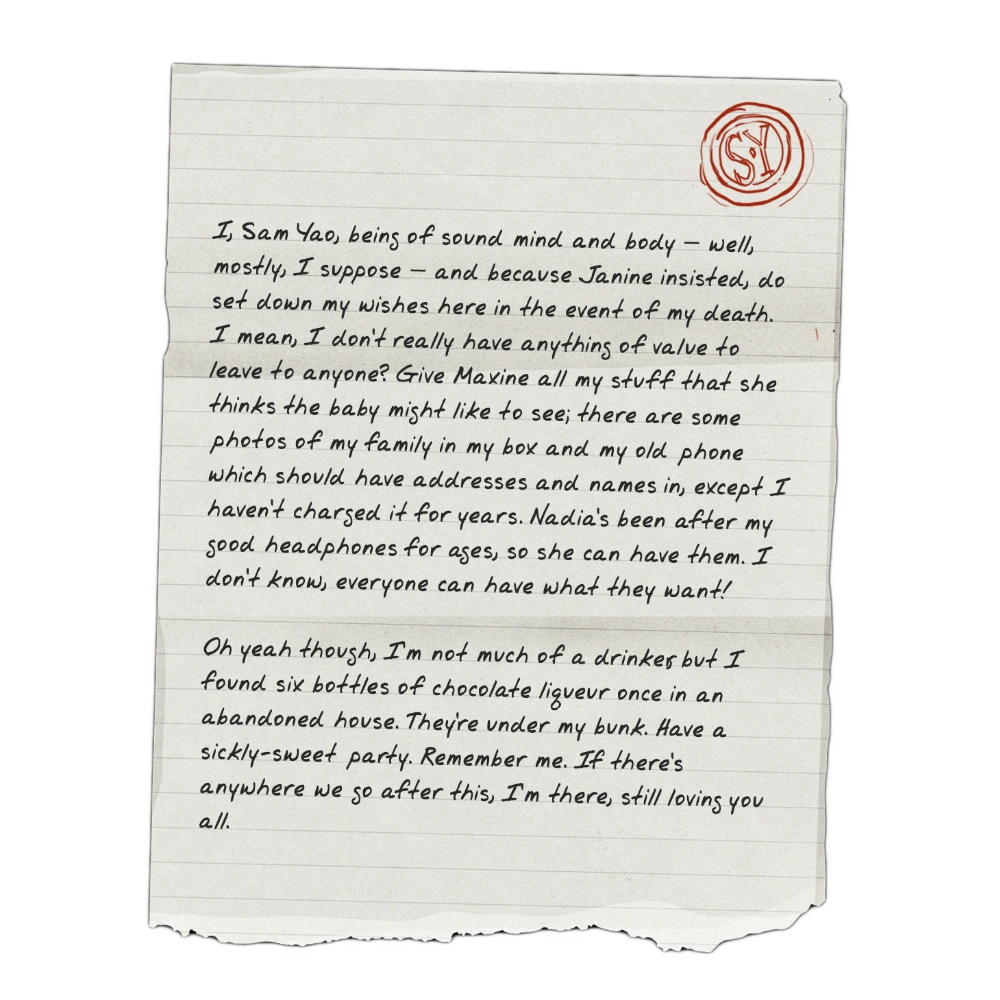 S.Y
I, Sam Yao, being of sound mind and body — well,
mostly, I suppose — and because Janine insisted, do
set down my wishes here in the event of my death.
I mean, I don't really have anything of value to
leave to anyone? Give Maxine all my stuff that she
thinks the baby might like to see; there are some
photos of my family in my box and my old phone
which should have addresses and names in, except I
haven't charged it for years. Nadia's been after my
good headphones for ages, so she can have them. I
don't know, everyone can have what they want!
Oh yeah though, I'm not much of a drinker, but I
found six bottles of chocolate liqueur once in an
abandoned house. They're under my bunk. Have a
sickly-sweet party. Remember me. If there's
anywhere we go after this, I'm there, still loving you
all.